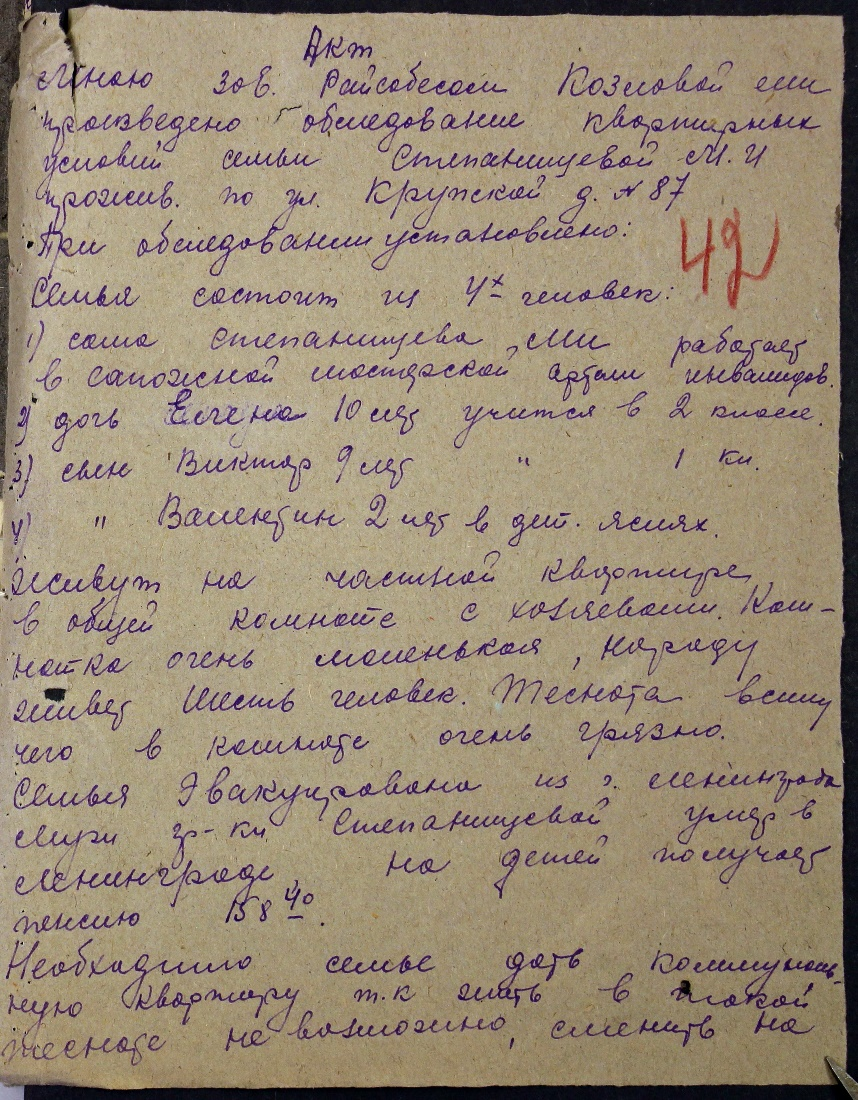 Акт
Мною зав. Райсобесом Козловой
произведено обследование квартирных
условий семьи Степанищевой М. И
прожив. по ул. Крупской д. № 87
При обследовании установлено:
42
Семья состоит из 4х человек:
1) сама Степанищева МИ работает
в сапожной мастерской артели инвалидов.
2) дочь 10 лет учится в 2 классе.
3) сын Виктор 9 лет " 1 кл.
4) " Валентин 2 лет в дет. яслях.
Живут на частной квартире
в общей комнате с хозяевами. Ком-
натка очень маленькая, народу
живет шесть человек. Теснота всилу
чего в комнате очень грязно.
Семья Эвакуирована из г. Ленинграда
Муж гр-ки Степанищевой умер в
Ленинграде, на детей получает
пенсию 158 40.
Необходимо семье дать коммуналь-
ную квартиру т.к жить в такой
тесноте не возможно, сменить на